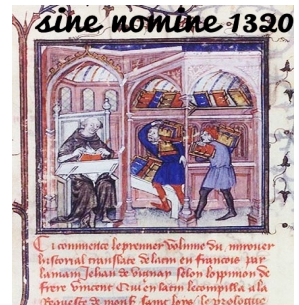 sine nomine 1320
Ci commence le premier volume du mirouer
historial translate de latin en francois par
Jehan de vignay selon loppinion de
frere Vincent Qui en latin le compilla a la
requeste de monſ. saint loys